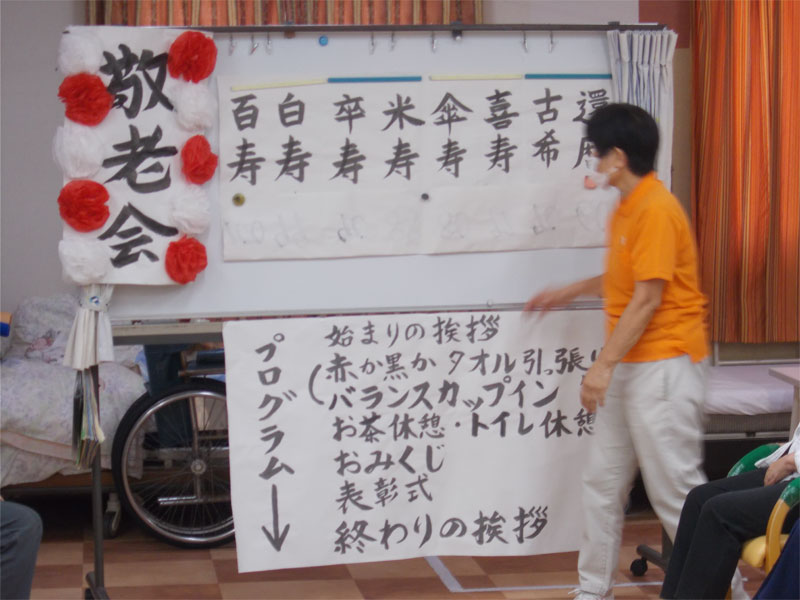 敬老会
還
古希
喜寿
傘寿
米寿
卒寿
白寿
百寿
プログラム
始まりの挨拶
赤か黒か タオル引っ張り
(バランスカップイン
お茶休憩・トイレ休憩
おみくじ
表彰式
終わりの挨拶